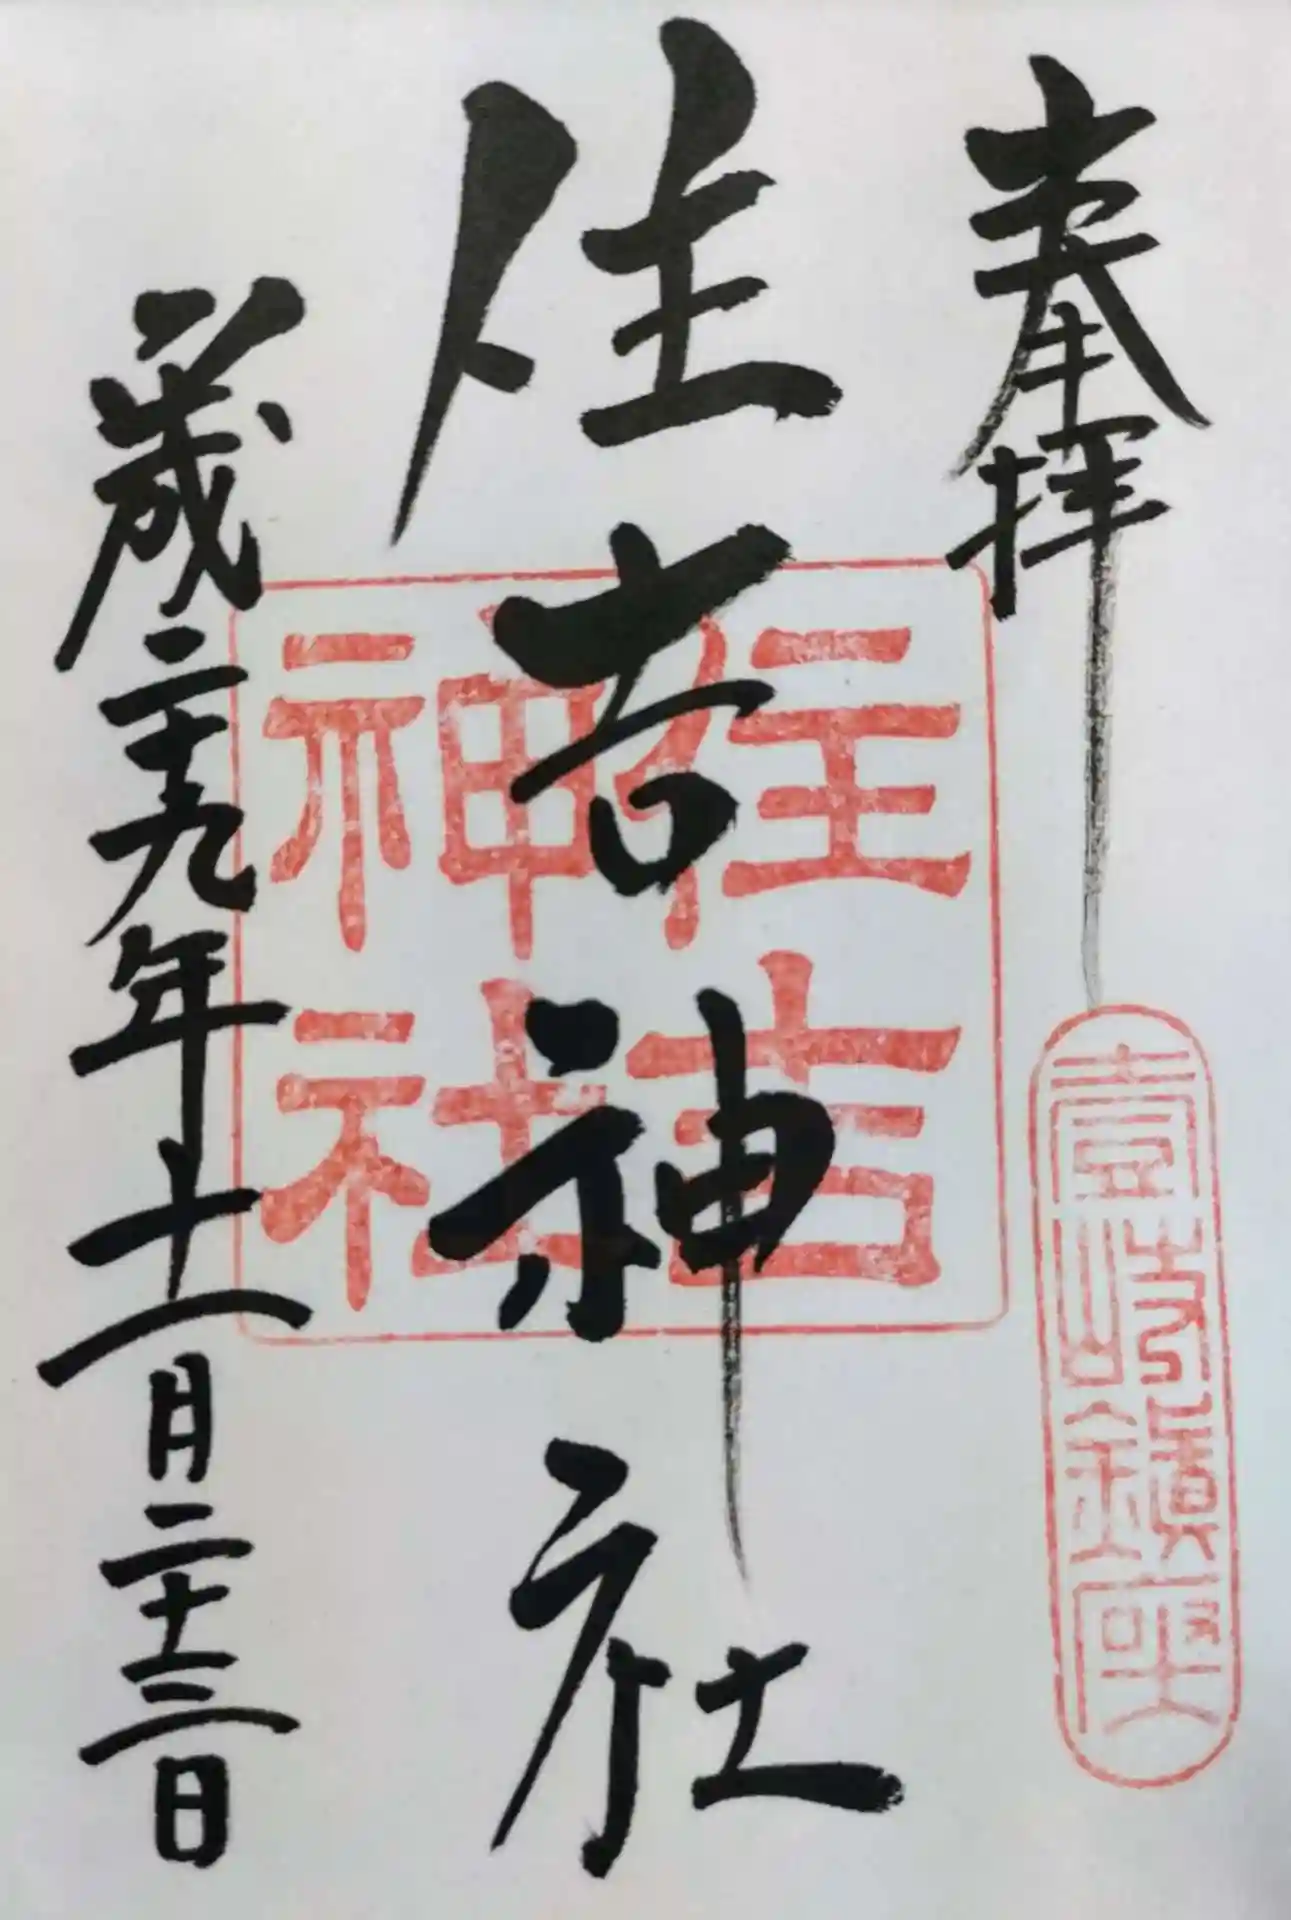 奉拝
壹岐鎮座
住吉神社
住吉
神社
歳二十九年十一月二十三日